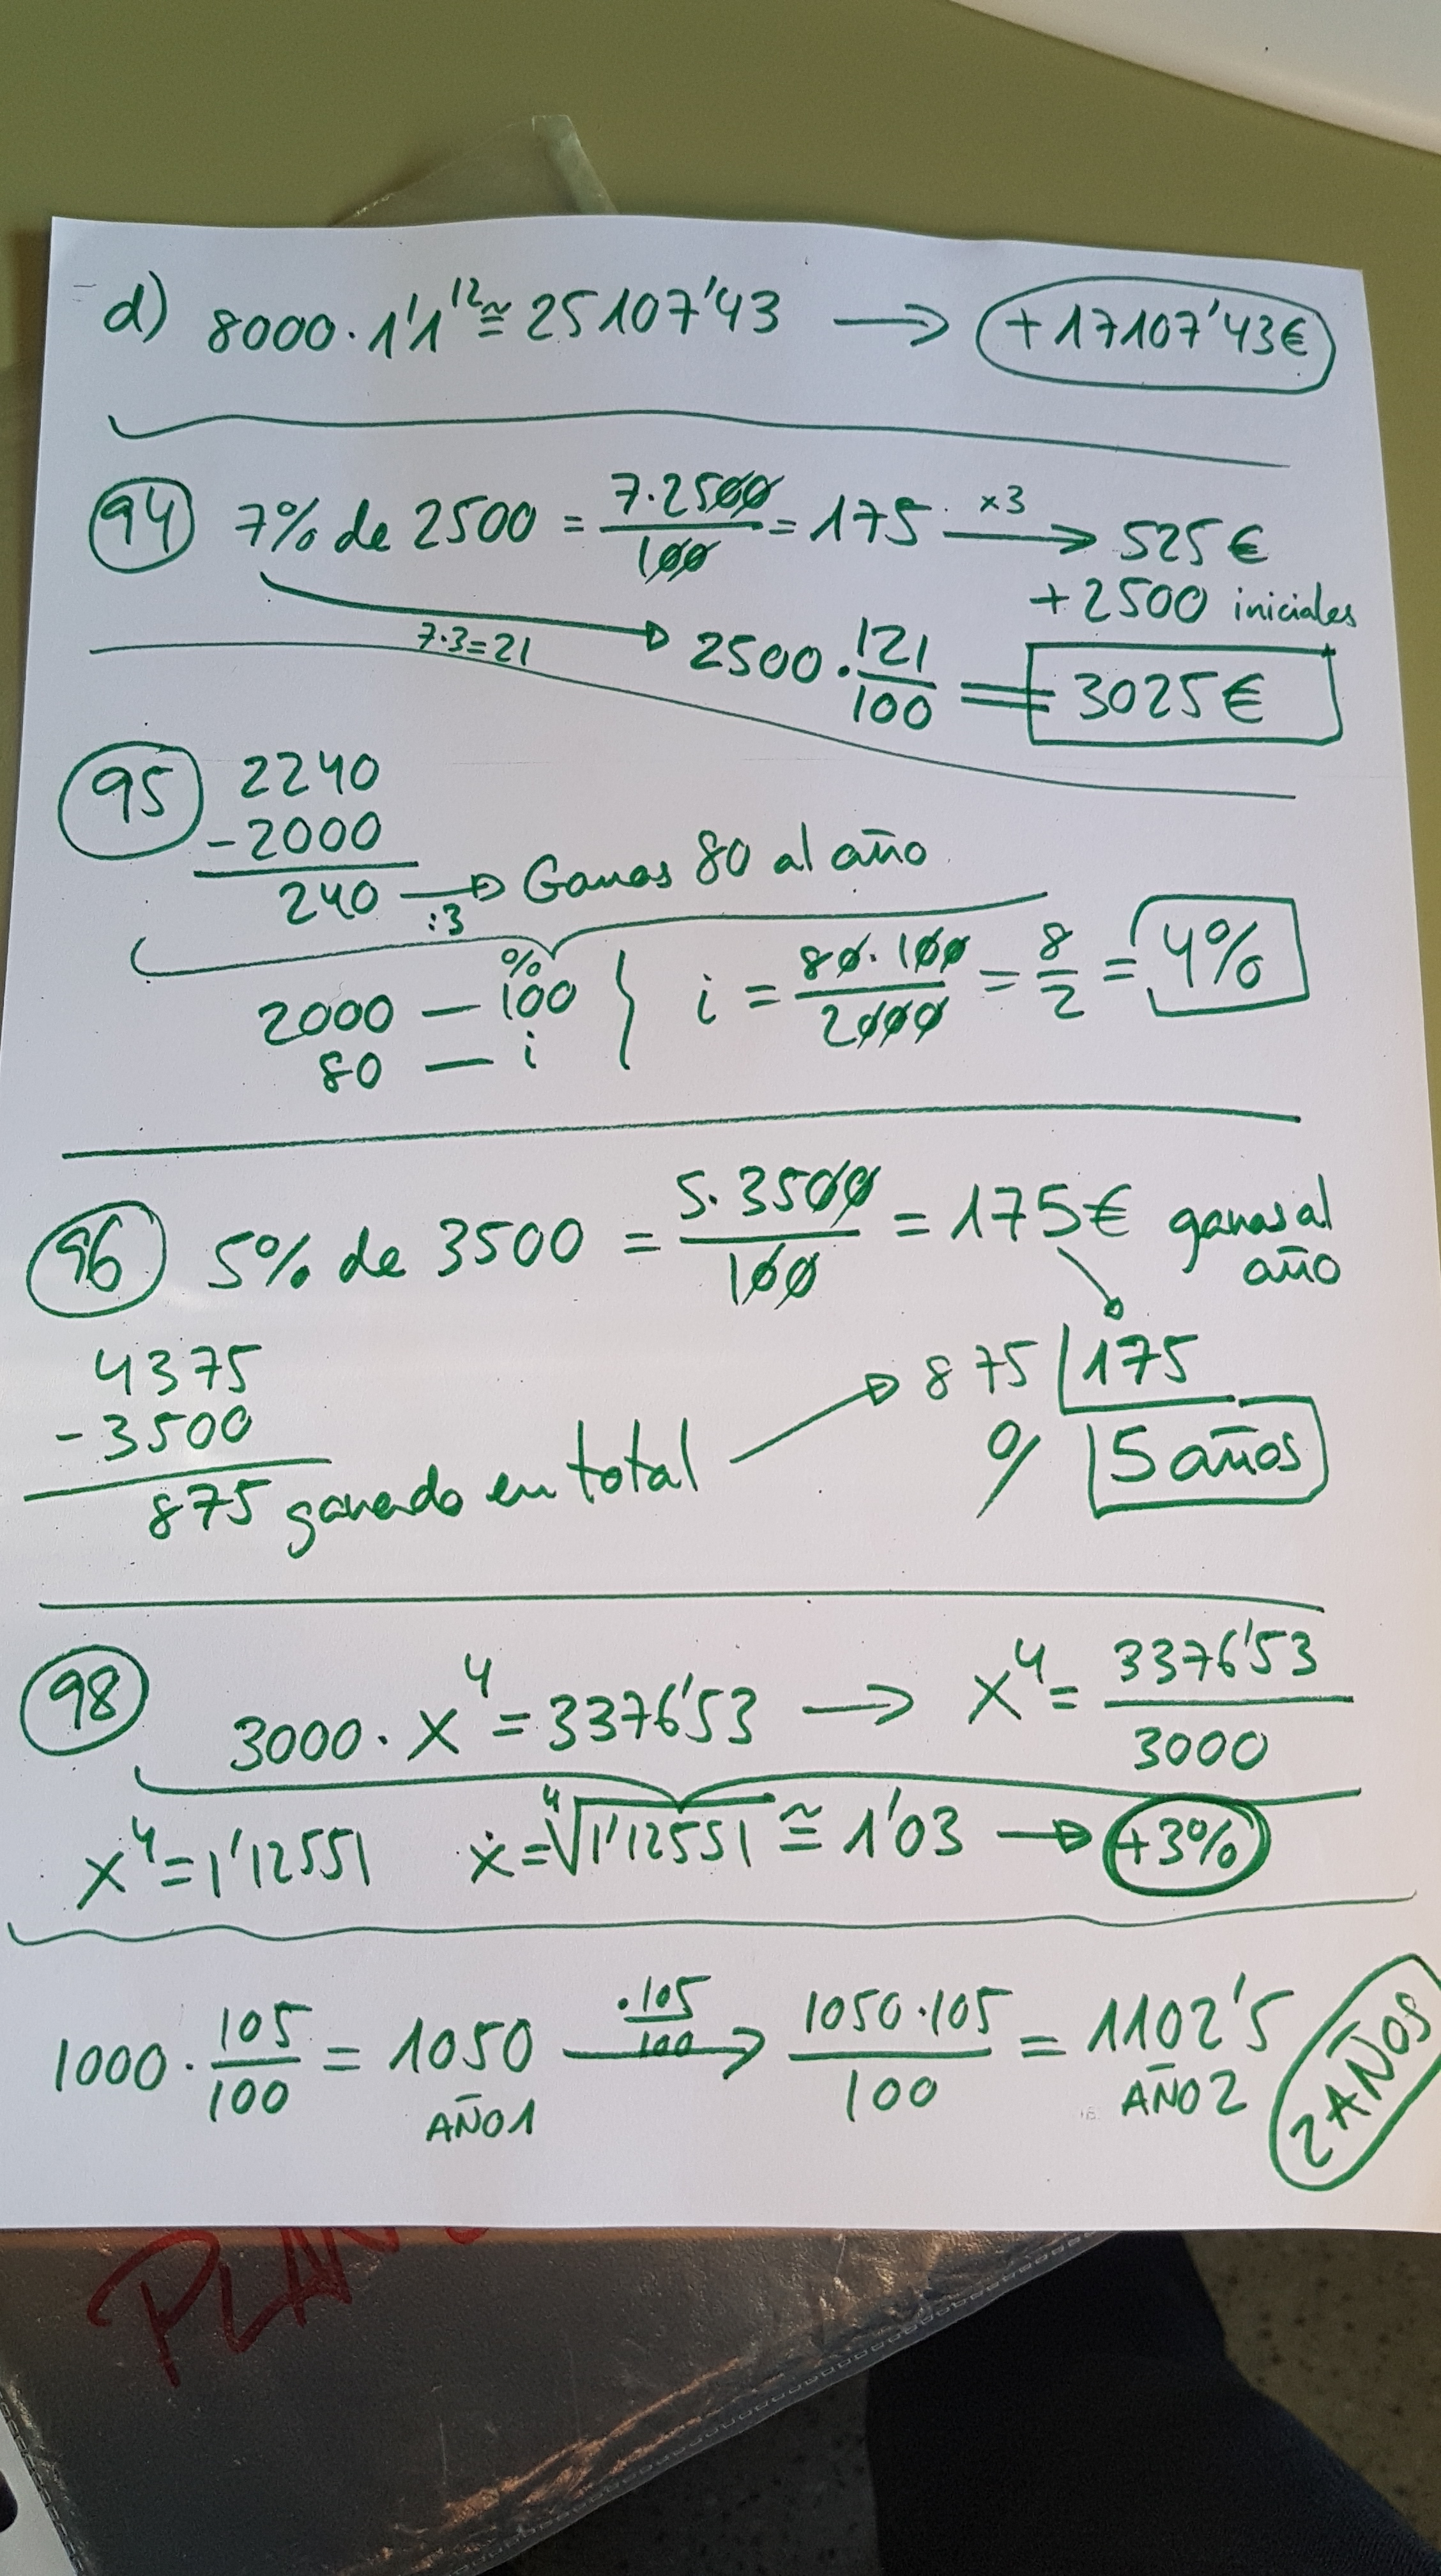 d) 8000·1'1^12 ≅ 25107'43 → +17107'43€
94 7% de 2500 = 7·2500/100 = 175 x3→ 525€
+2500 iniciales
7·3=21 → 2500·121/100 = 3025€
95 2240
-2000
240 :3→ Ganas 80 al año
2000 — 100 %
80 — i } i = 80·100/2000 = 8/2 = 4%
96 5% de 3500 = 5·3500/100 = 175€ ganas al año
4375
-3500
875 ganado en total → 875 |175
0/ 5 años
98 3000·x^4 = 3376'53 → x^4 = 3376'53/3000
x^4 = 1'12551 x = ⁴√1'12551 ≅ 1'03 → +3%
1000·105/100 = 1050 ·105/100→ 1050·105/100 = 1102'5 2 AÑOS
AÑO1 AÑO 2